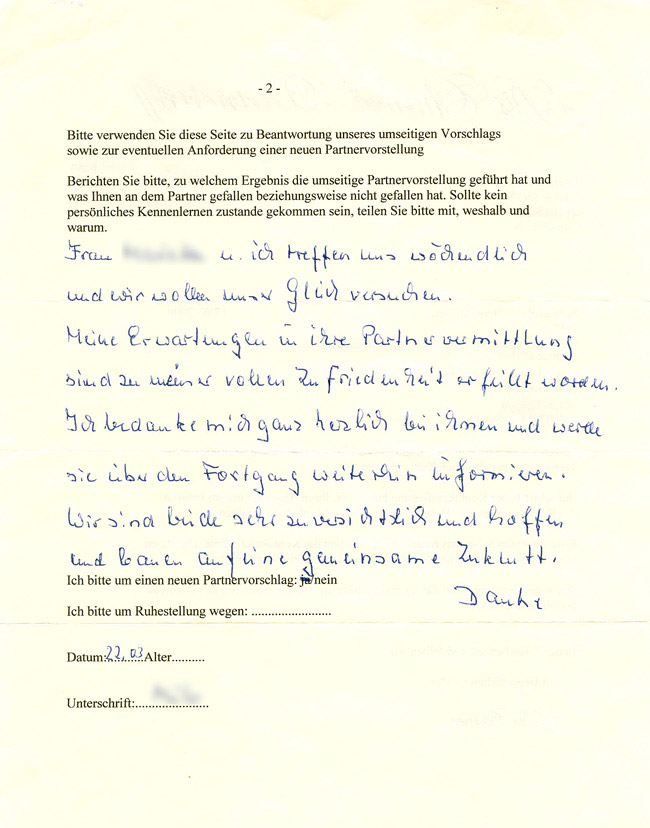 - 2 -
Bitte verwenden Sie diese Seite zu Beantwortung unseres umseitigen Vorschlags
sowie zur eventuellen Anforderung einer neuen Partnervorstellung
Berichten Sie bitte, zu welchem Ergebnis die umseitige Partnervorstellung geführt hat und
was Ihnen an dem Partner gefallen beziehungsweise nicht gefallen hat. Sollte kein
persönliches Kennenlernen zustande gekommen sein, teilen Sie bitte mit, weshalb und
warum.
Frau u. ich treffen uns wöchendlich
und wir wollen unser Glück versuchen.
Meine Erwartungen in ihre Partnervermittlung
sind zu meiner vollen Zufriedenheit erfüllt worden.
Ich bedanke mich ganz herzlich bei ihnen und werde
sie über den Fortgang weiterhin informieren.
Wir sind beide sehr zuversichtlich und hoffen
und bauen auf eine gemeinsame Zukunft.
Ich bitte um einen neuen Partnervorschlag: ja/nein
Danke
Ich bitte um Ruhestellung wegen: ........................
Datum:22.03.Alter..........
Unterschrift:......................